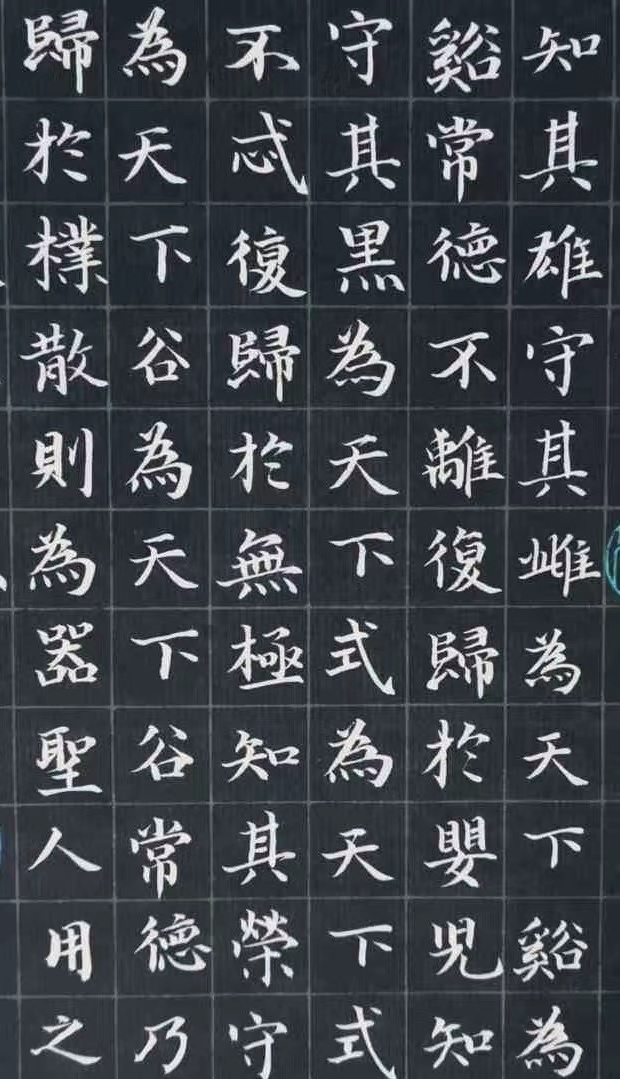 知其雄守其雌為天下谿為
谿常德不離復歸於嬰児知
守其黒為天下式為天下式
不忒復歸於無極知其榮守
為天下谷為天下谷常德乃
歸於樸散則為器聖人用之